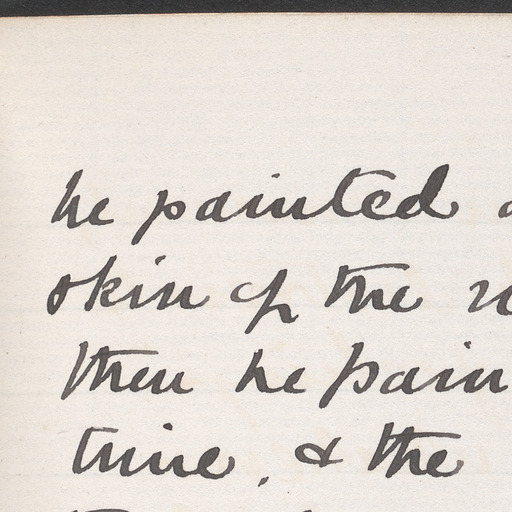 he painted
skin of the
then he pain
time, & the